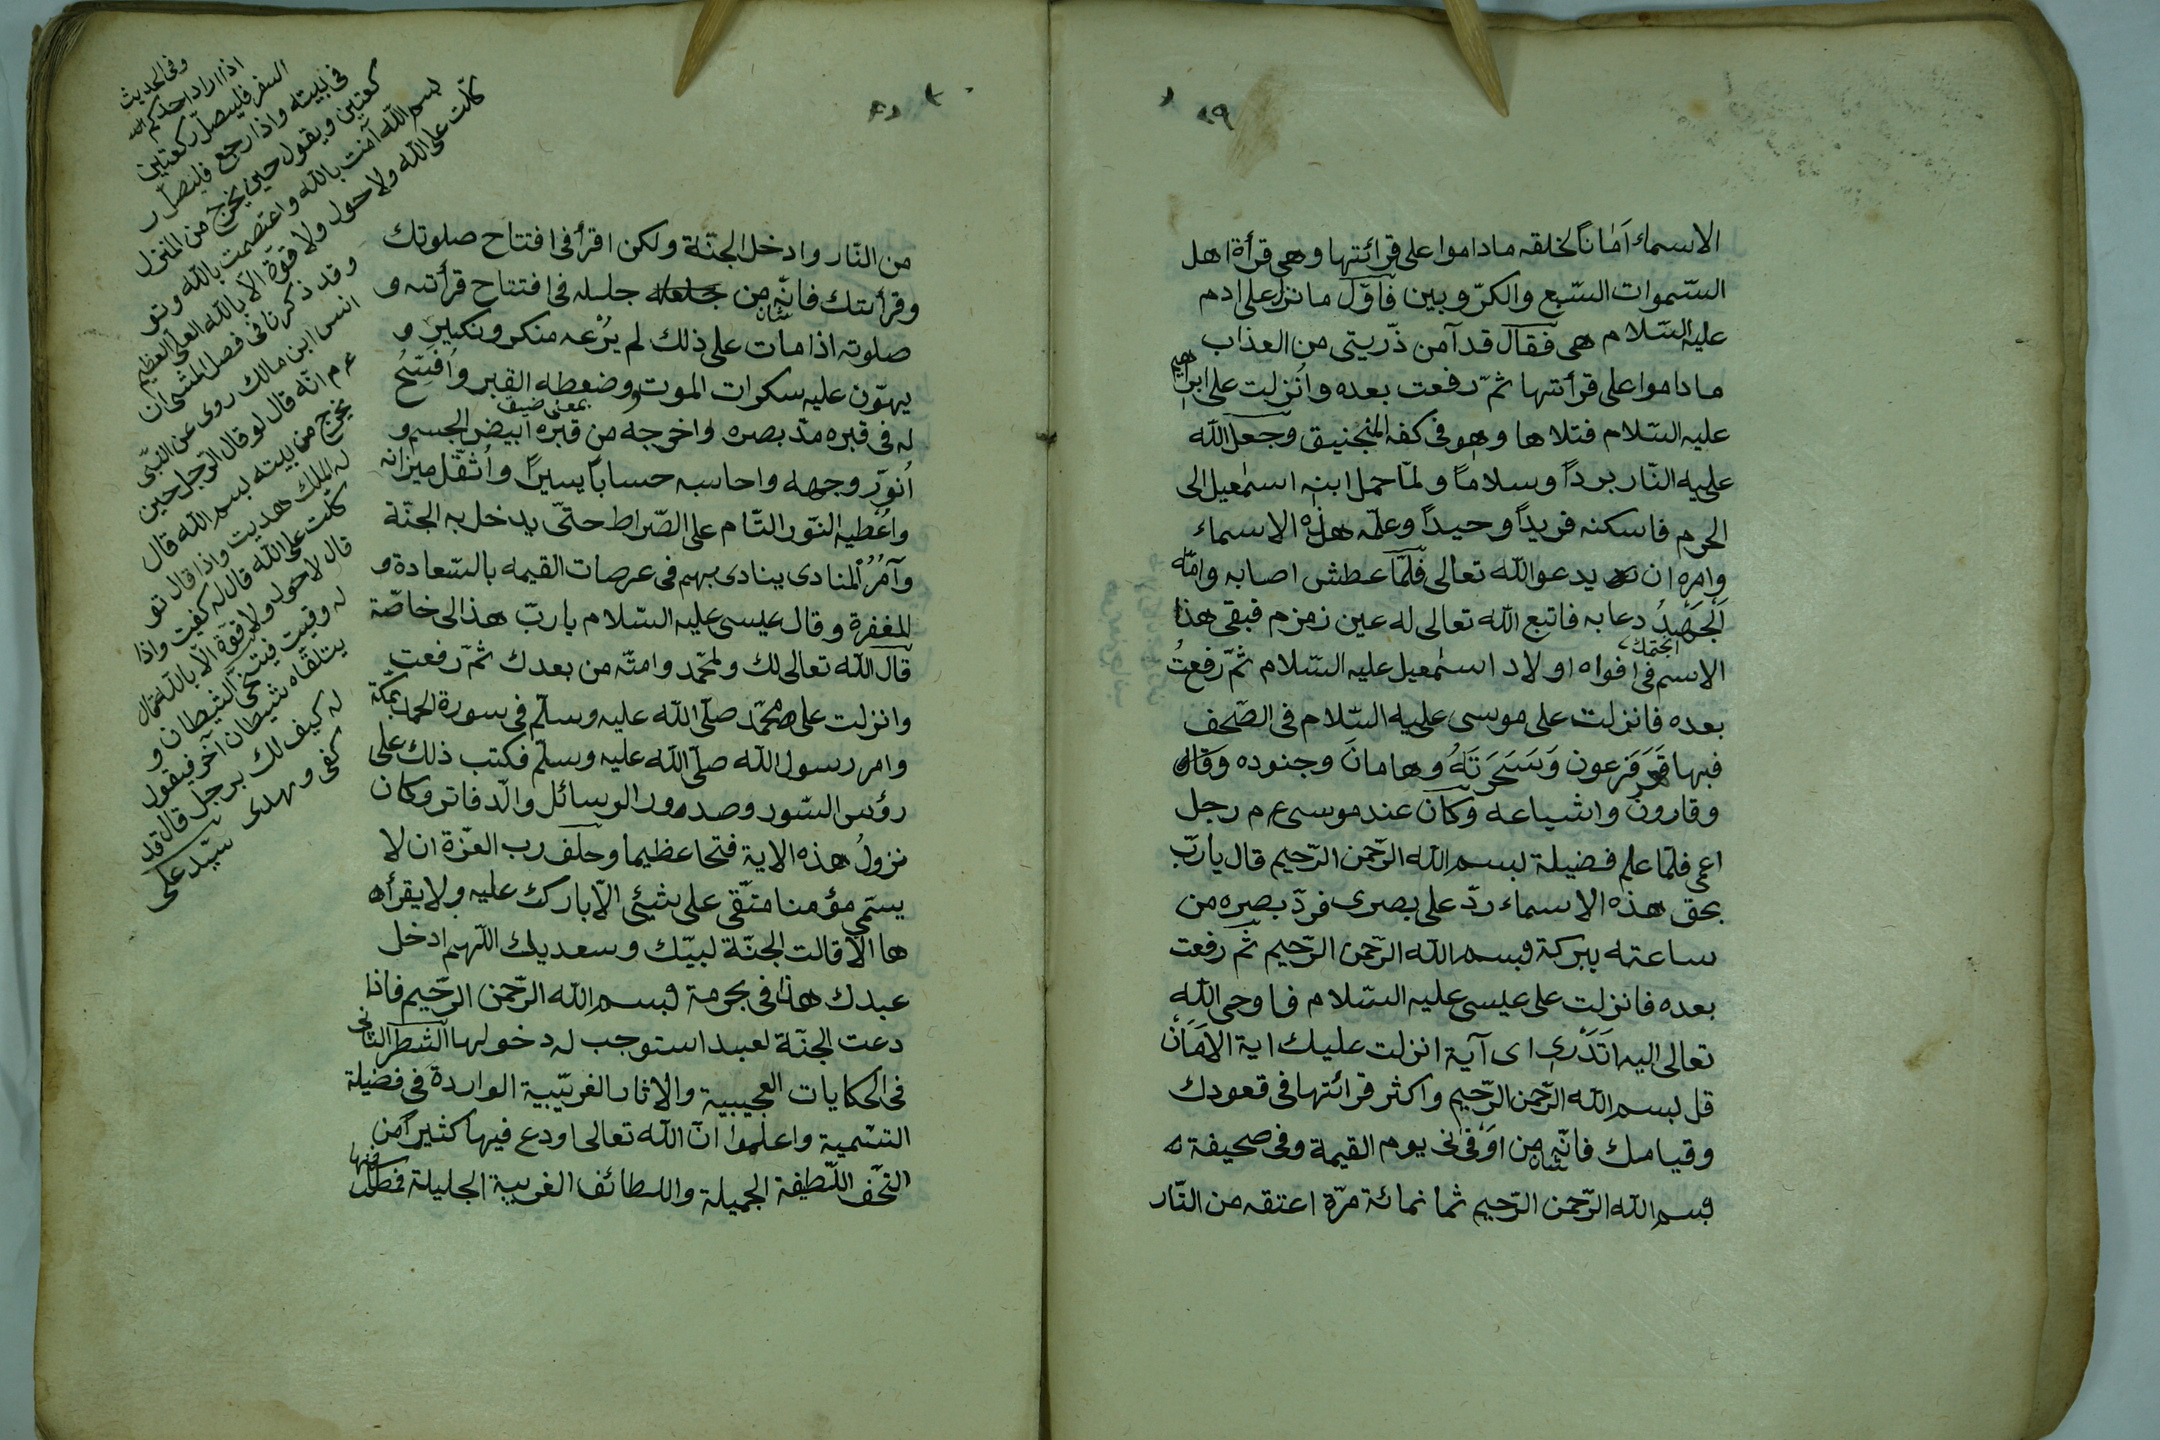 الاسماء اَمَاناً لخلقه ماداموا على قرائتها وهى قرأة اهل
السّموات السّبع والكرّوبين فاوّل ما نزل على ادم
عليه السّلام هى فقال قد آمن ذرّيتى من العذاب
ماداموا على قرأتها ثمّ رفعت بعده واُنزلت على ابراهيم
عليه السّلام فتلاها وهو فى كفه المنجنيق وجعل اللّه
عليه النّار برداً وسلاماً ولمّا حمل ابنه اسمٰعيل الى
الحرم فاسكنه فريداً وحيداً وعلّمه هذه الاسماء
وامره ان يدعو اللّه تعالى فلمّا عطش اصابه وامّه
اَلْجَهْدُ دعا به فاتبع اللّه تعالى له عين زمزم فبقى هذا
الاسم فى افواه اولاد اسمٰعيل عليه السّلام ثمّ رفعتْ
بعده فانزلت على موسى عليه السّلام فى الصّحف
فبها قهر فرعون وَسَحَرَتَهُ وهامانَ وجنوده
وقارون واشياعه وكان عند موسى ع م رجل
اعمى فلمّا علم فضيلة بسم اللّه الرّحمن الرّحيم قال يا ربّ
بحق هذه الاسماء ردّ على بصرى فردّ بصره من
ساعته ببركة بسم اللّه الرّحمن الرّحيم ثم رفعت
بعده فانزلت على عيسى عليه السّلام فاوحى اللّه
تعالى اليه اَتَدْرِى اى آية انزلت عليك اية الاَمَانْ
قل بسم اللّه الرّحمن الرّحيم واكثر قرائتها فى قعودك
وقيامك فانّه من اوْفٰى يوم القيمة وفى صحيفته
بسم اللّه الرّحمن الرّحيم ثمانمائة مرّة اعتقه من النّار
من النّار وادخل الجنّة ولكن اقرأ فى افتتاح صلوتك
وقرأتك فانّه من جلسله فى افتتاح قرأته و
صلوته اذا مات على ذلك لم يُرْعه منكر ونكير و
يهوّن عليه سكرات الموت وضغطه القبر واُفتِحُ
بمعنى ضيق
له فى قبره مدّ بصره واخرجه من قبره ابيض الجسم و
اُنوّر وجهه واحاسبه حساباً يسيراً واُثقّل ميزانه
واُعْطيه النّور التّام على الصّراط حتّى يدخل به الجنّة
وآمُرُ المنادى ينادى بهم فى عرصات القيمه بالسّعادة و
المغفرة وقال عيسى عليه السّلام يا ربّ هذا لى خاصّة
قال اللّه تعالى لك ولمحمّد وامته من بعدك ثمّ رفعت
وانزلت على محمّد صلّى اللّه عليه وسلّم فى سورة الحمد بمكة
وامر رسول اللّه صلّى اللّه عليه وسلّم فكتب ذلك على
رؤس السّور وصدور الرسائل والدّفاتر وكان
نزولُ هذه الاية فتحا عظيما وحلف رب العزّة ان لا
يسمّى مؤمنا متّقى على شيئ الّا بارك عليه ولا يقرأه
ها الّا قالت الجنّة لبيّك وسعديك اللّهم ادخل
عبدك هذا فى بحرمة بسم اللّه الرّحمن الرّحيم فاذا
دعت الجنّة لعبد استوجب له دخولها الشطر الثانى
فى الحكايات العجيبية والاثار الغريّبية الواردة فى فضيلة
التسّمية واعلموا انّ اللّه تعالى اودع فيها كثيراً من
التّحف اللّطيفة الجميلة واللطائف الغريبة الجليلة
وفى الحديث
اذا اراد احدكم
السفر فليصلّ ركعتين
فى بيته واذا رجع فليصلّ ر
كعتين ويقول حين يخرج من المنزل
بسم اللّه آمنت باللّه واعتصمت باللّه وتو
كلّت على اللّه ولا حول ولا قوّة الّا باللّه العلىّ العظيم
وقد ذكرنا فى فصل المشى ان
انس ابن مالك روى عن النّبى
ع م انّه قال لو قال الرّجل حين
يخرج من بيته بسم اللّه قال
له الملك هديت واذا قال تو
كلّت على اللّه قال له كفيت واذا
قال لا حول ولا قوّة الّا باللّه قال
له وقيت فيتنحّى الشيطان و
يتلقّاه شيطان آخر فيقول
له كيف لك برجل قال قد
كفى وهدى سيّد على